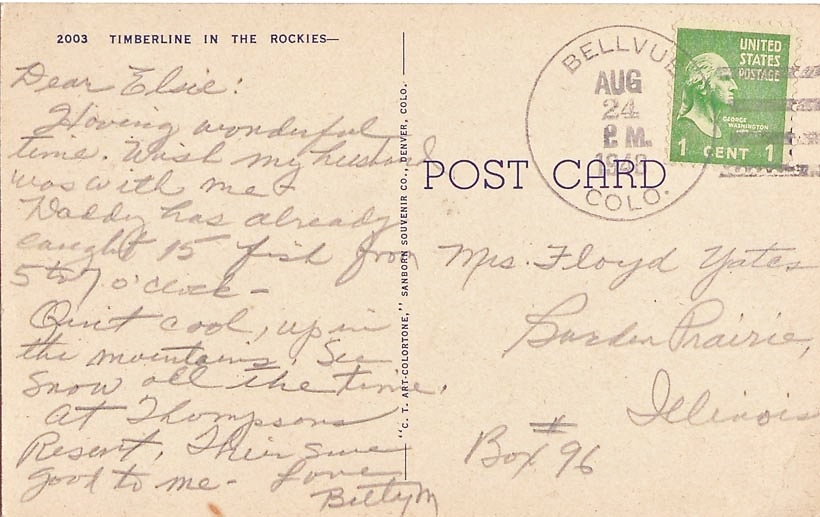 2003 TIMBERLINE IN THE ROCKIES—
Dear Elsie:
Having wonderful
time. Wish my husband
was with me -
Daddy has already
caught 15 fish from
5 to 7 o'clock -
Quit cool, up in
the mountains. See
snow all the time.
at Thompsons
Resort, Their sure
good to me - Love
Betty M
"C. T. ART-COLORTONE," SANBORN SOUVENIR CO., DENVER, COLO.
POST CARD
BELLVUE
AUG
24
P M.
COLO.
UNITED
STATES
POSTAGE
GEORGE
WASHINGTON
1 CENT 1
Mrs. Floyd Yates
Garden Prairie,
Illinois
Box # 96